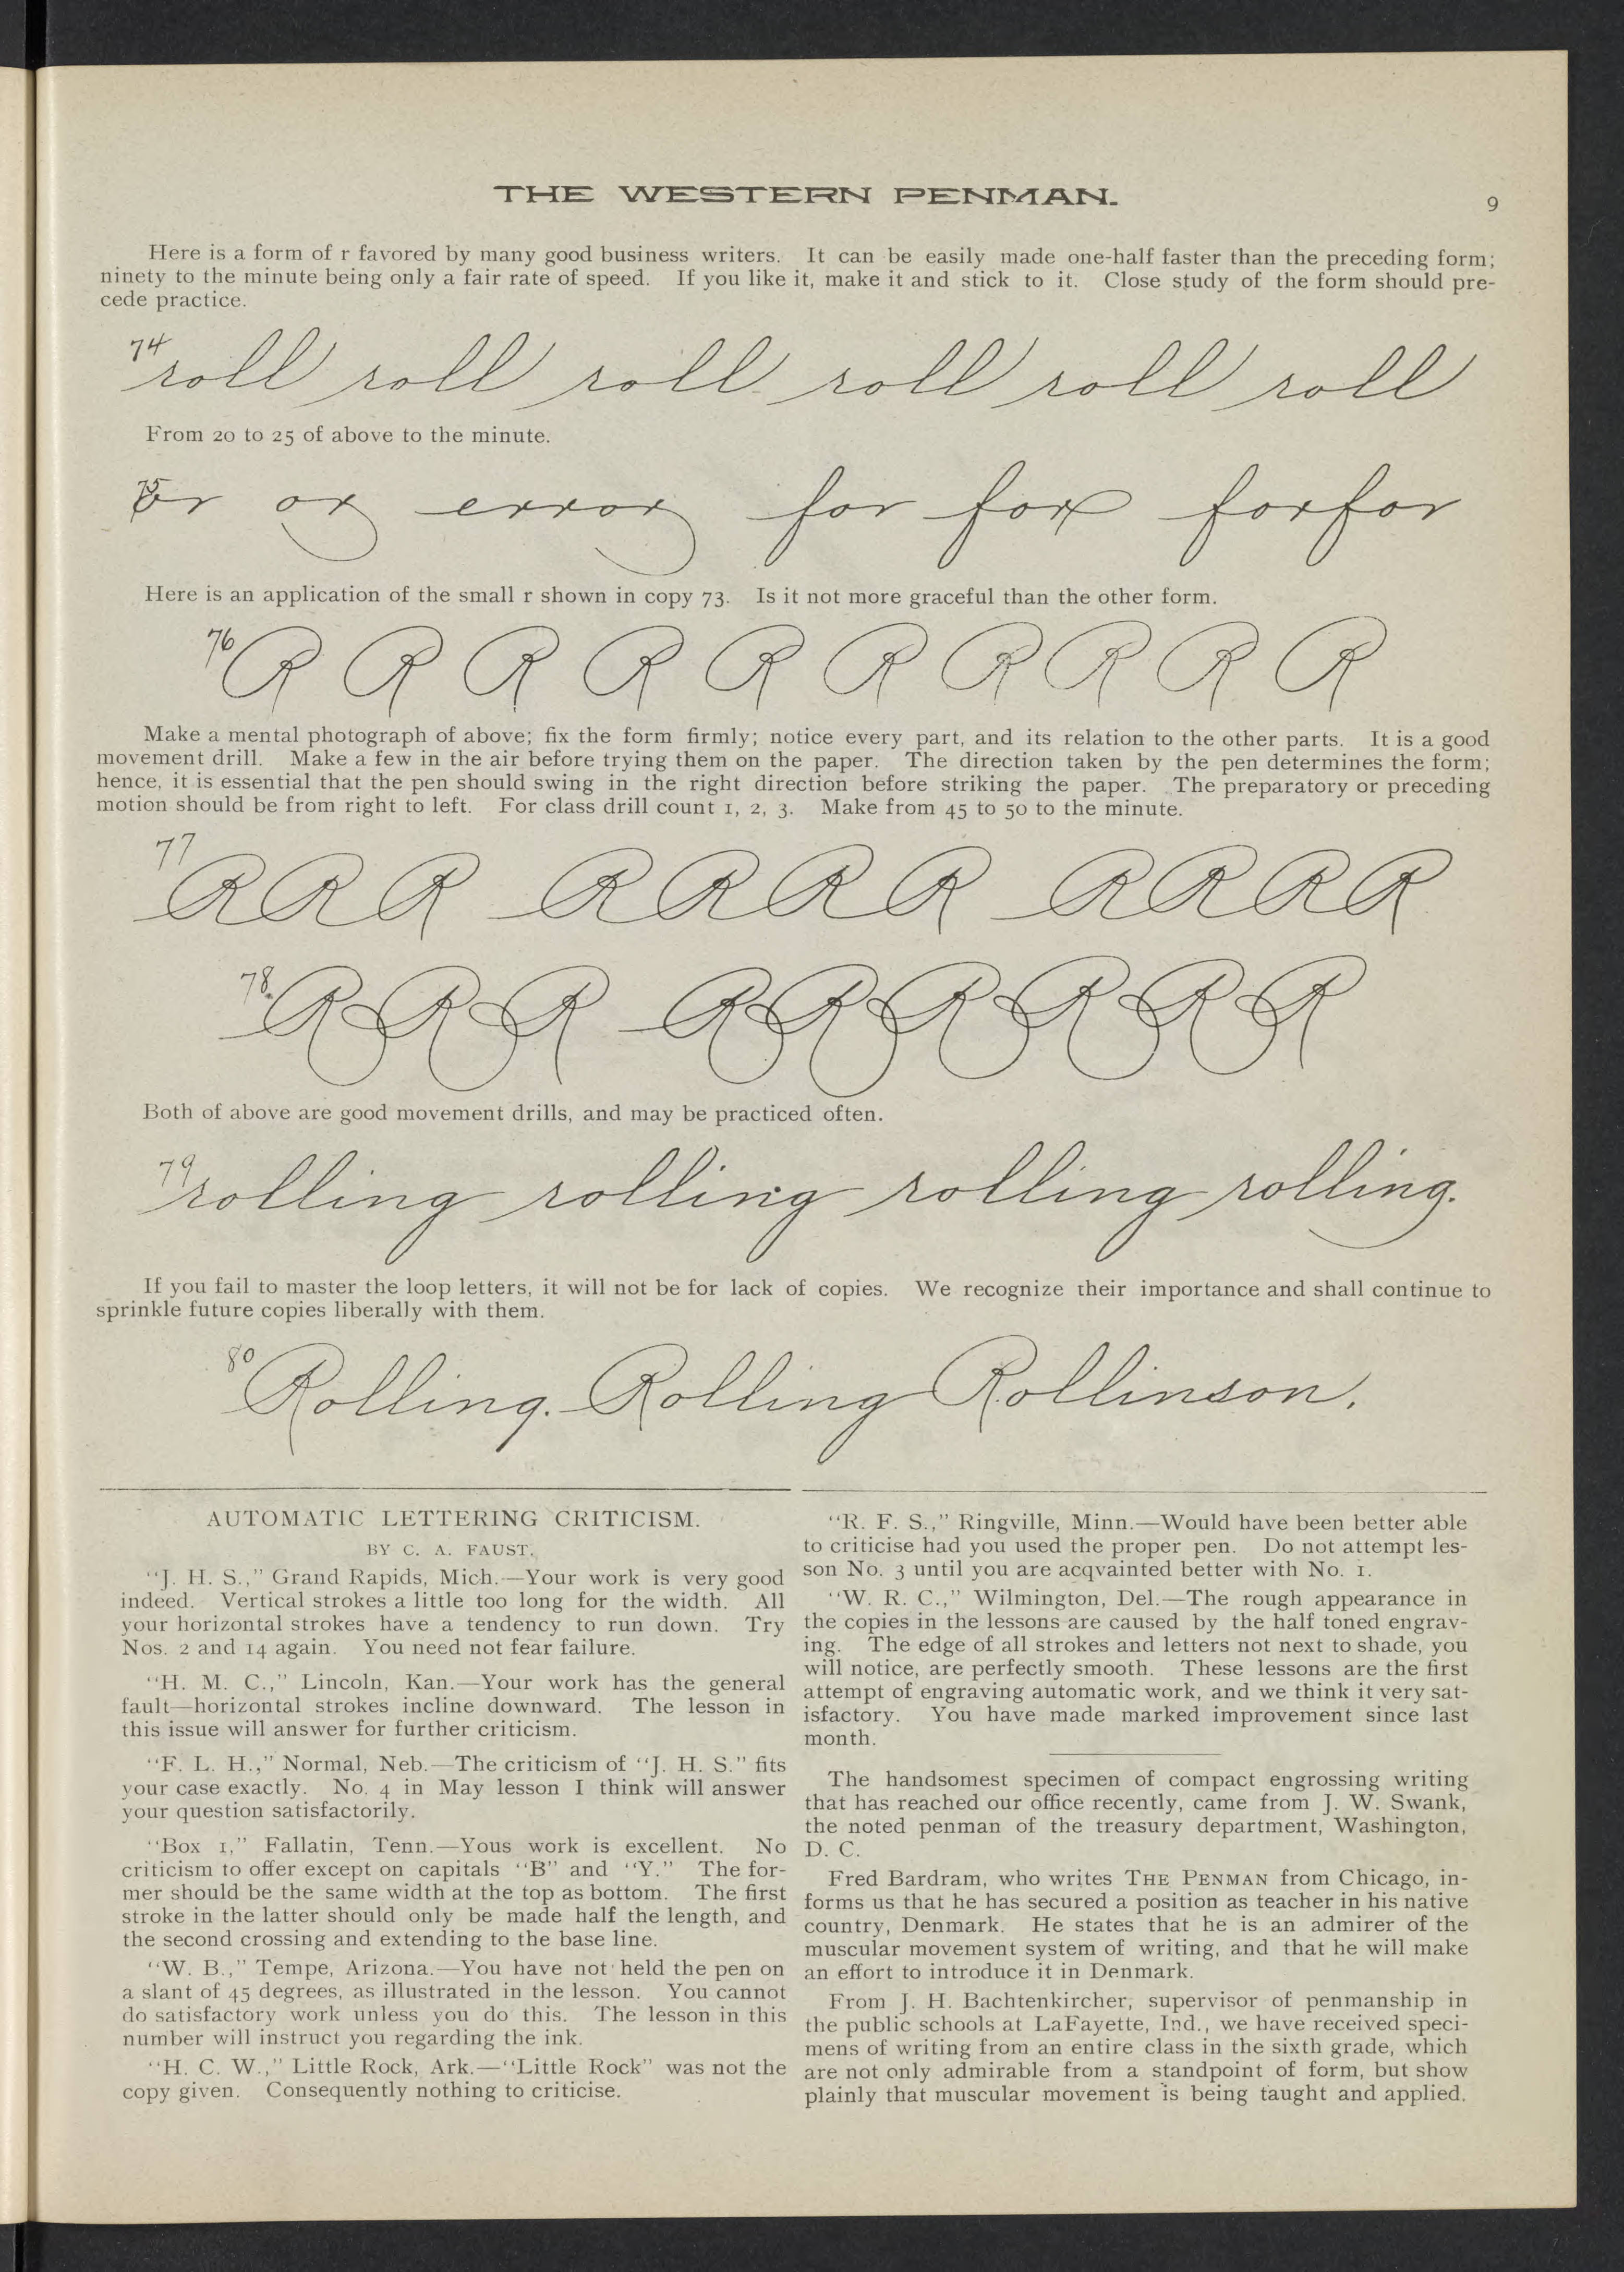 THE WESTERN PENMAN.
9
Here is a form of r favored by many good business writers. It can be easily made one-half faster than the preceding form;
ninety to the minute being only a fair rate of speed. If you like it, make it and stick to it. Close study of the form should pre-
cede practice.
74 roll roll roll roll roll roll
From 20 to 25 of above to the minute.
75 or or error for for forfor
Here is an application of the small r shown in copy 73. Is it not more graceful than the other form.
76 R R R R R R R R R R
Make a mental photograph of above; fix the form firmly; notice every part, and its relation to the other parts. It is a good
movement drill. Make a few in the air before trying them on the paper. The direction taken by the pen determines the form;
hence, it is essential that the pen should swing in the right direction before striking the paper. The preparatory or preceding
motion should be from right to left. For class drill count 1, 2, 3. Make from 45 to 50 to the minute.
77 RRR RRRR RRRR
78. RRR RRRRRR
Both of above are good movement drills, and may be practiced often.
79 rolling rolling rolling rolling.
If you fail to master the loop letters, it will not be for lack of copies. We recognize their importance and shall continue to
sprinkle future copies liberally with them.
80 Rolling. Rolling Rollinson.
AUTOMATIC LETTERING CRITICISM.
BY C. A. FAUST.
"J. H. S.," Grand Rapids, Mich.—Your work is very good
indeed. Vertical strokes a little too long for the width. All
your horizontal strokes have a tendency to run down. Try
Nos. 2 and 14 again. You need not fear failure.
"H. M. C.," Lincoln, Kan.—Your work has the general
fault—horizontal strokes incline downward. The lesson in
this issue will answer for further criticism.
"F. L. H.," Normal, Neb.—The criticism of "J. H. S." fits
your case exactly. No. 4 in May lesson I think will answer
your question satisfactorily.
"Box 1," Fallatin, Tenn.—Yous work is excellent. No
criticism to offer except on capitals "B" and "Y." The for-
mer should be the same width at the top as bottom. The first
stroke in the latter should only be made half the length, and
the second crossing and extending to the base line.
"W. B.," Tempe, Arizona.—You have not held the pen on
a slant of 45 degrees, as illustrated in the lesson. You cannot
do satisfactory work unless you do this. The lesson in this
number will instruct you regarding the ink.
"H. C. W.," Little Rock, Ark.—"Little Rock" was not the
copy given. Consequently nothing to criticise.
"R. F. S.," Ringville, Minn.—Would have been better able
to criticise had you used the proper pen. Do not attempt les-
son No. 3 until you are acqvainted better with No. 1.
"W. R. C.," Wilmington, Del.—The rough appearance in
the copies in the lessons are caused by the half toned engrav-
ing. The edge of all strokes and letters not next to shade, you
will notice, are perfectly smooth. These lessons are the first
attempt of engraving automatic work, and we think it very sat-
isfactory. You have made marked improvement since last
month.
The handsomest specimen of compact engrossing writing
that has reached our office recently, came from J. W. Swank,
the noted penman of the treasury department, Washington,
D. C.
Fred Bardram, who writes THE PENMAN from Chicago, in-
forms us that he has secured a position as teacher in his native
country, Denmark. He states that he is an admirer of the
muscular movement system of writing, and that he will make
an effort to introduce it in Denmark.
From J. H. Bachtenkircher, supervisor of penmanship in
the public schools at LaFayette, Ind., we have received speci-
mens of writing from an entire class in the sixth grade, which
are not only admirable from a standpoint of form, but show
plainly that muscular movement is being taught and applied.